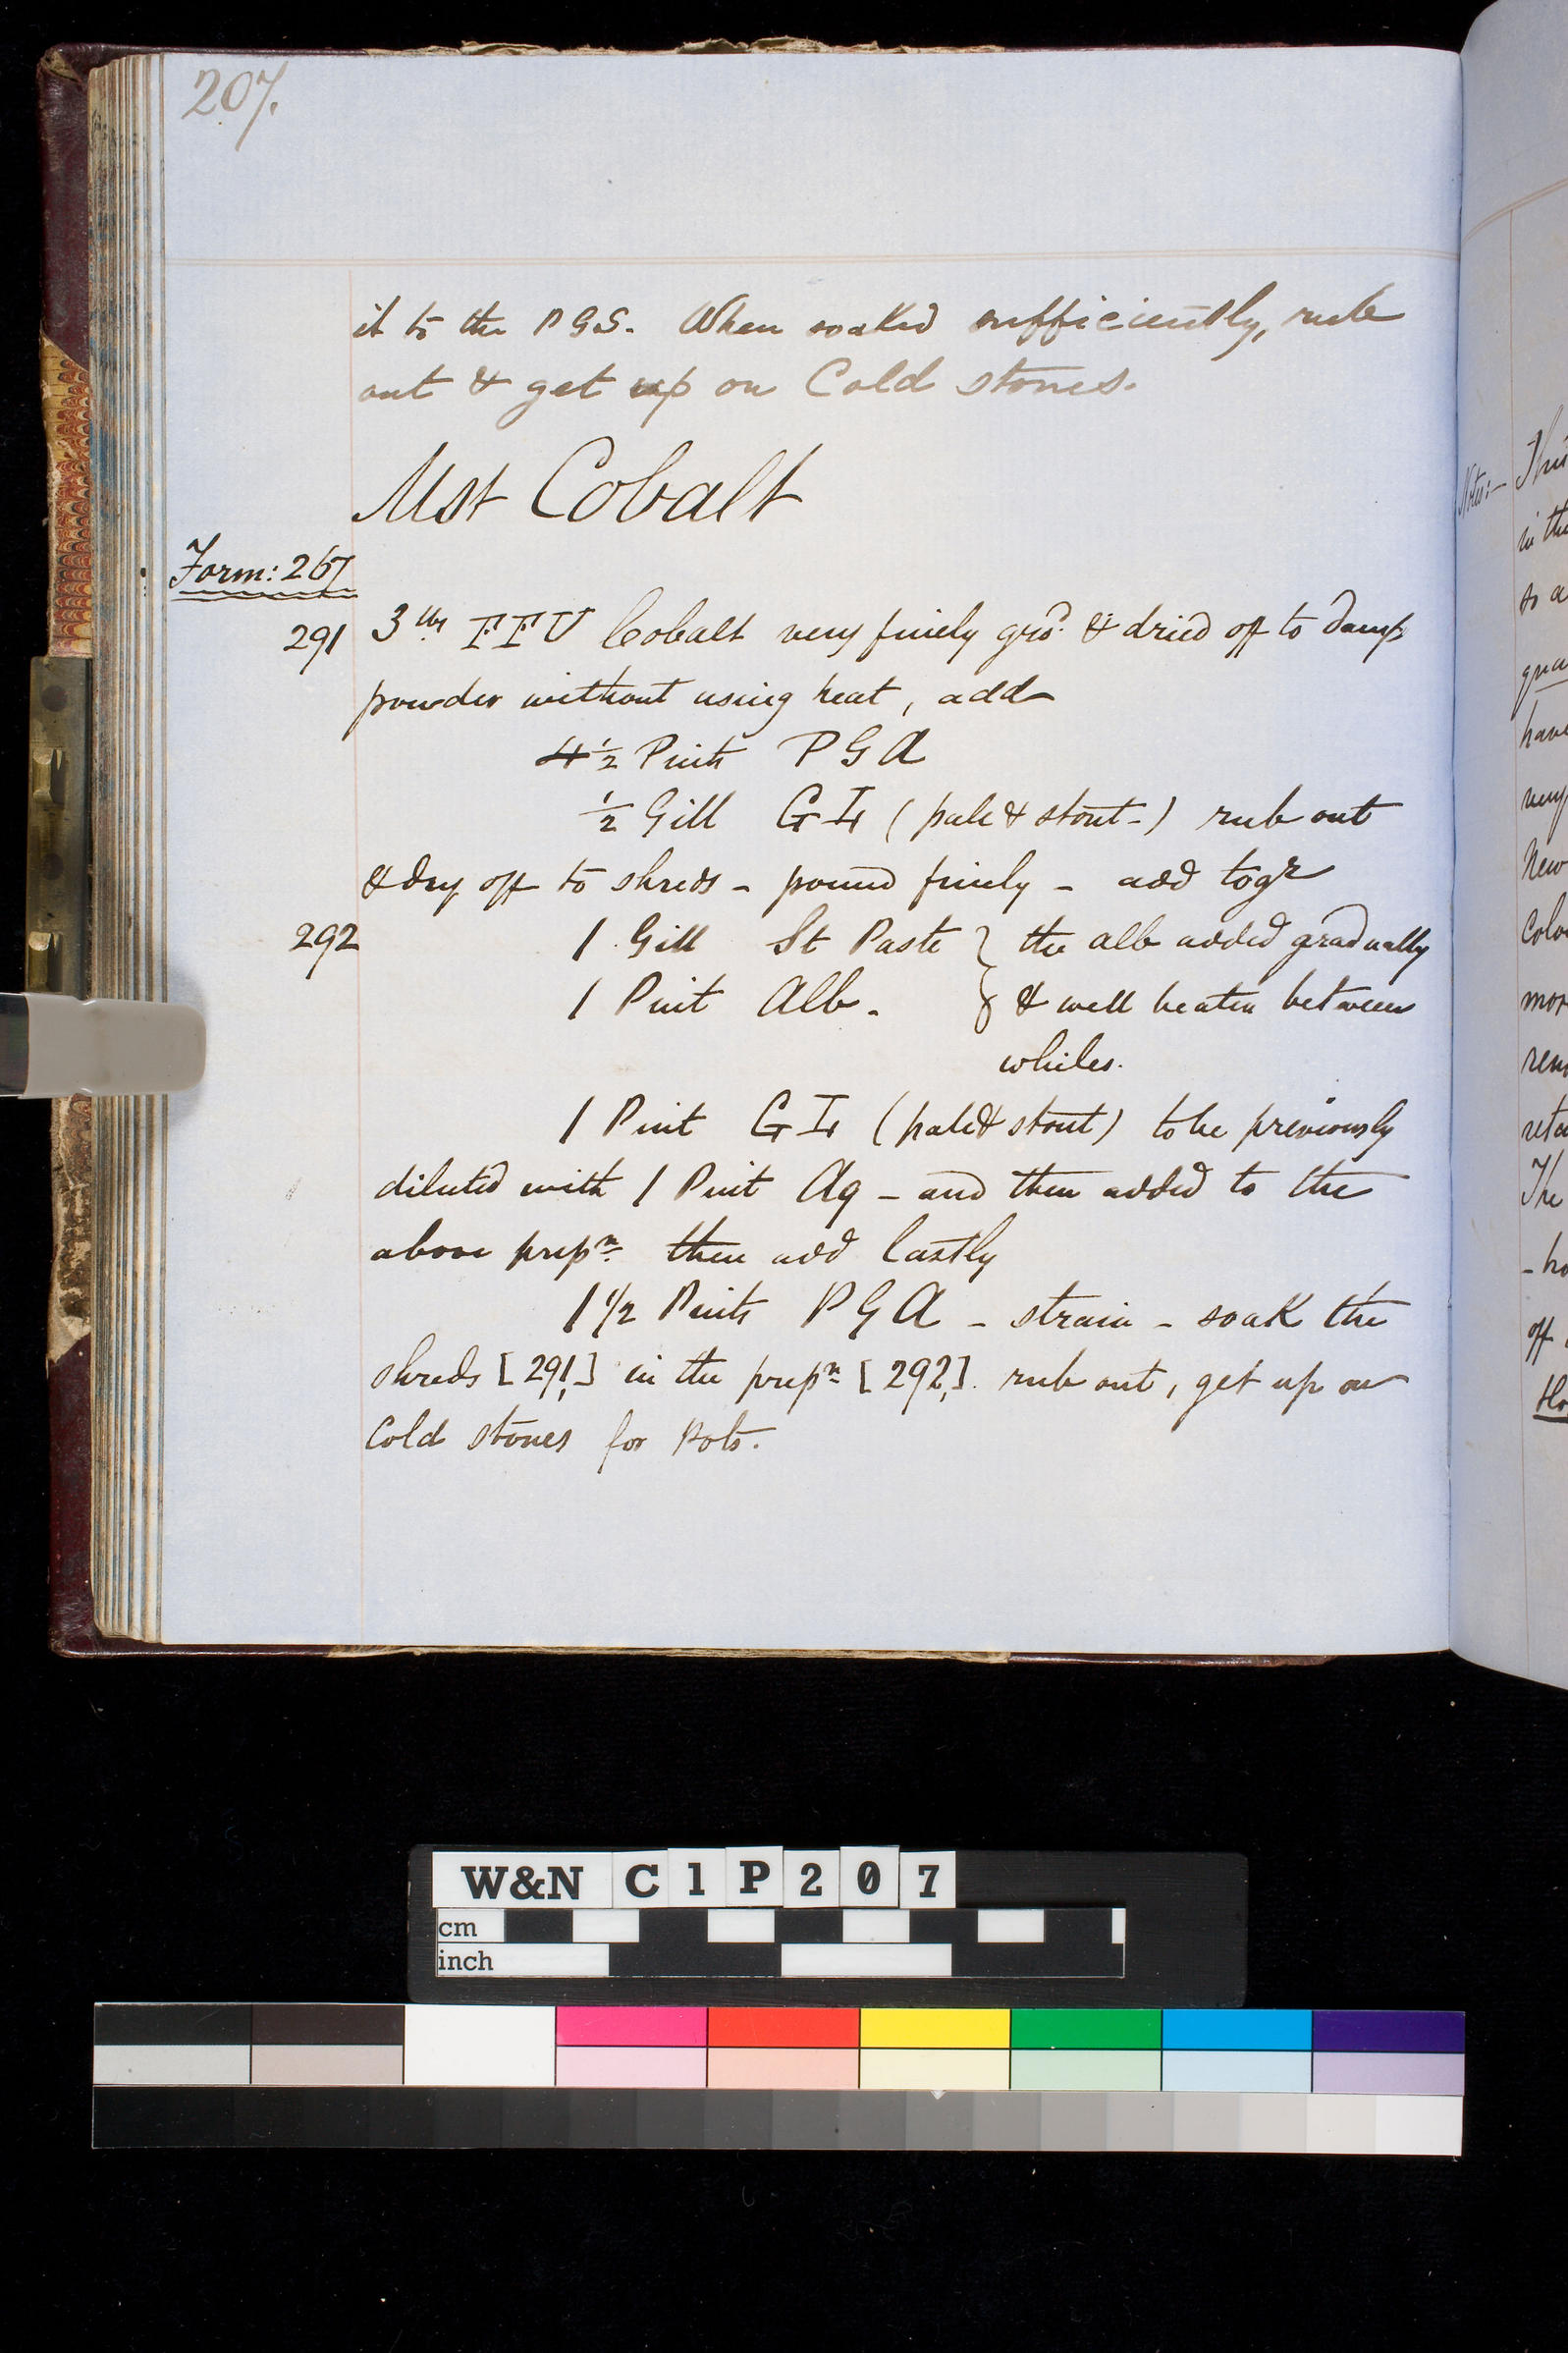 207.
it to the P G S. When soaked sufficiently, rub
out & get up on Cold stones.
Mst Cobalt
Form: 267
291 3 lbs FFU Cobalt very finely grd. & dried off to damp
powder without using heat, add
4 1/2 Pints P G A
1/2 Gill G I (pale & stout-) rub out
& dry off to shreds - pound finely - add togr
292 1 Gill St Paste } the alb added gradually
1 Pint Alb. } & well beaten between
whiles.
1 Pint G I (pale & stout) to be previously
diluted with 1 Pint Aq - and then added to the
above prepn. then add lastly
1 1/2 Pints P G A - strain - soak the
shreds [291,] in the prepn [292,]. rub out, get up on
Cold stones for Pots.
Notes:-
This
in the
so a
qua
have
very
New
Colou
mor
reta
The
- ho
off
W&N C1P207
cm
inch